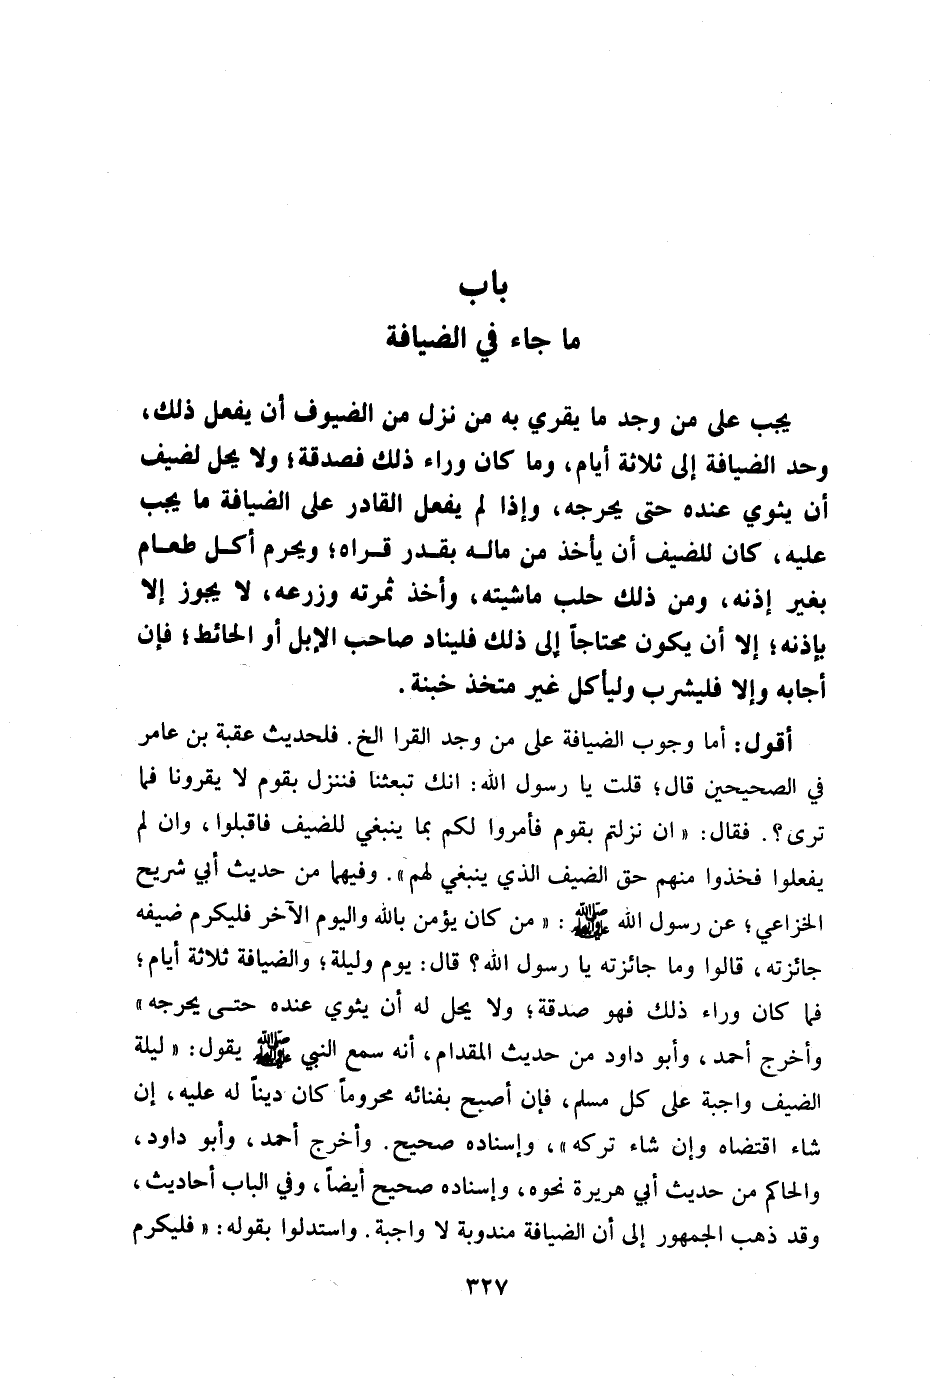 باب
ما جاء في الضيافة
يجب على من وجد ما يقري به من نزل من الضيوف أن يفعل ذلك،
وحد الضيافة إلى ثلاثة أيام، وما كان وراء ذلك فصدقة؛ ولا يحل لضيف
أن يثوي عنده حتى يحرجه، وإذا لم يفعل القادر على الضيافة ما يجب
عليه، كان للضيف أن يأخذ من ماله بقدر قراه؛ ويحرم أكل طعام
بغير إذنه، ومن ذلك حلب ماشيته، وأخذ ثمرته وزرعه، لا يجوز إلا
بإذنه؛ إلا أن يكون محتاجاً إلى ذلك فليناد صاحب الإبل أو الحائط؛ فإن
أجابه وإلا فليشرب وليأكل غير متخذ خبنة.
أقول: أما وجوب الضيافة على من وجد القرا الخ. فلحديث عقبة بن عامر
في الصحيحين قال؛ قلت يا رسول الله: انك تبعثنا فننزل بقوم لا يقرونا فما
ترى؟. فقال: «ان نزلتم بقوم فأمروا لكم بما ينبغي للضيف فاقبلوا، وان لم
يفعلوا فخذوا منهم حق الضيف الذي ينبغي لهم». وفيهما من حديث أبي شريح
الخزاعي؛ عن رسول الله ﷺ: «من كان يؤمن بالله واليوم الآخر فليكرم ضيفه
جائزته، قالوا وما جائزته يا رسول الله؟ قال: يوم وليلة؛ والضيافة ثلاثة أيام؛
فما كان وراء ذلك فهو صدقة؛ ولا يحل له أن يثوي عنده حتى يحرجه»
وأخرج أحمد، وأبو داود من حديث المقدام، أنه سمع النبي ﷺ يقول: «ليلة
الضيف واجبة على كل مسلم، فإن أصبح بفنائه محروماً كان ديناً له عليه، إن
شاء اقتضاه وإن شاء تركه»، وإسناده صحيح. وأخرج أحمد، وأبو داود،
والحاكم من حديث أبي هريرة نحوه، وإسناده صحيح أيضاً، وفي الباب أحاديث،
وقد ذهب الجمهور إلى أن الضيافة مندوبة لا واجبة. واستدلوا بقوله: «فليكرم
٣٢٧